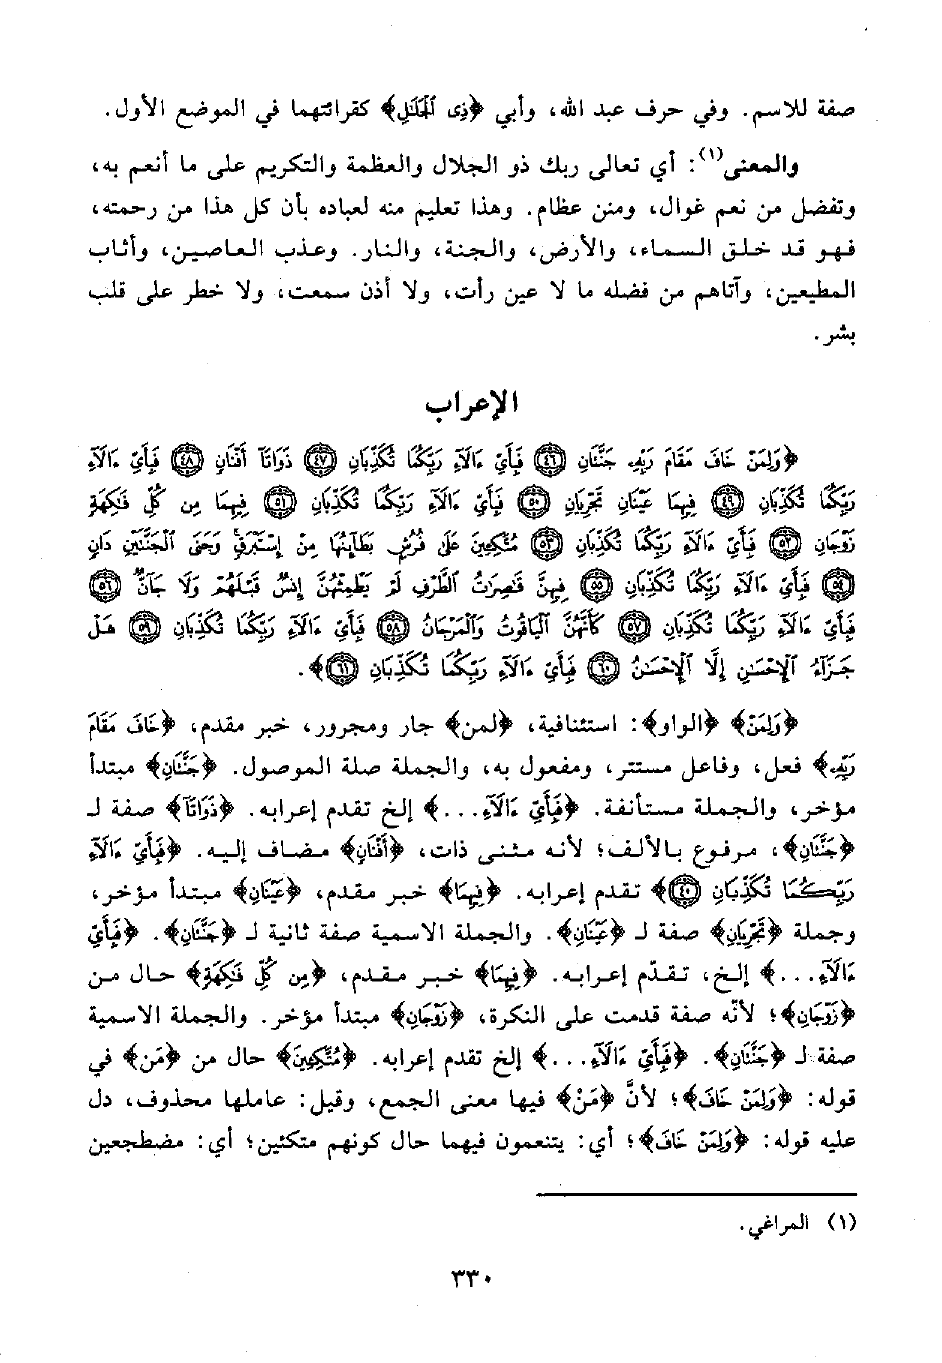 صفة للاسم. وفي حرف عبد الله، وأبي ﴿ذِى الْجَلَٰلِ﴾ كقرائتهما في الموضع الأول.
والمعنى(١): أي تعالى ربك ذو الجلال والعظمة والتكريم على ما أنعم به،
وتفضل من نعم غوال، ومنن عظام. وهذا تعليم منه لعباده بأن كل هذا من رحمته،
فهو قد خلق السماء، والأرض، والجنة، والنار. وعذب العاصين، وأثاب
المطيعين، وآتاهم من فضله ما لا عين رأت، ولا أذن سمعت، ولا خطر على قلب
بشر.
الإعراب
﴿وَلِمَنْ خَافَ مَقَامَ رَبِّهِۦ جَنَّتَانِ ٤٦ فَبِأَيِّ ءَالَآءِ رَبِّكُمَا تُكَذِّبَانِ ٤٧ ذَوَاتَآ أَفْنَانٍ ٤٨ فَبِأَيِّ ءَالَآءِ
رَبِّكُمَا تُكَذِّبَانِ ٤٩ فِيهِمَا عَيْنَانِ تَجْرِيَانِ ٥٠ فَبِأَيِّ ءَالَآءِ رَبِّكُمَا تُكَذِّبَانِ ٥١ فِيهِمَا مِن كُلِّ فَٰكِهَةٍ
زَوْجَانِ ٥٢ فَبِأَيِّ ءَالَآءِ رَبِّكُمَا تُكَذِّبَانِ ٥٣ مُتَّكِـِٔينَ عَلَىٰ فُرُشٍۭ بَطَآئِنُهَا مِنْ إِسْتَبْرَقٍ وَجَنَى الْجَنَّتَيْنِ دَانٍ
٥٤ فَبِأَيِّ ءَالَآءِ رَبِّكُمَا تُكَذِّبَانِ ٥٥ فِيهِنَّ قَٰصِرَٰتُ الطَّرْفِ لَمْ يَطْمِثْهُنَّ إِنسٌ قَبْلَهُمْ وَلَا جَآنٌّ ٥٦
فَبِأَيِّ ءَالَآءِ رَبِّكُمَا تُكَذِّبَانِ ٥٧ كَأَنَّهُنَّ الْيَاقُوتُ وَالْمَرْجَانُ ٥٨ فَبِأَيِّ ءَالَآءِ رَبِّكُمَا تُكَذِّبَانِ ٥٩ هَلْ
جَزَآءُ الْإِحْسَٰنِ إِلَّا الْإِحْسَٰنُ ٦٠ فَبِأَيِّ ءَالَآءِ رَبِّكُمَا تُكَذِّبَانِ ٦١﴾.
﴿وَلِمَنْ﴾ ﴿الواو﴾: استئنافية، ﴿لمن﴾ جار ومجرور، خبر مقدم، ﴿خَافَ مَقَامَ
رَبِّهِۦ﴾ فعل، وفاعل مستتر، ومفعول به، والجملة صلة الموصول. ﴿جَنَّتَانِ﴾ مبتدأ
مؤخر، والجملة مستأنفة. ﴿فَبِأَيِّ ءَالَآءِ...﴾ إلخ تقدم إعرابه. ﴿ذَوَاتَآ﴾ صفة لـ
﴿جَنَّتَانِ﴾، مرفوع بالألف؛ لأنه مثنى ذات، ﴿أَفْنَانٍ﴾ مضاف إليه. ﴿فَبِأَيِّ ءَالَآءِ
رَبِّكُمَا تُكَذِّبَانِ ٤٠﴾ تقدم إعرابه. ﴿فِيهِمَا﴾ خبر مقدم، ﴿عَيْنَانِ﴾ مبتدأ مؤخر،
وجملة ﴿تَجْرِيَانِ﴾ صفة لـ ﴿عَيْنَانِ﴾. والجملة الاسمية صفة ثانية لـ ﴿جَنَّتَانِ﴾. ﴿فَبِأَيِّ
ءَالَآءِ...﴾ إلخ، تقدّم إعرابه. ﴿فِيهِمَا﴾ خبر مقدم، ﴿مِن كُلِّ فَٰكِهَةٍ﴾ حال من
﴿زَوْجَانِ﴾؛ لأنّه صفة قدمت على النكرة، ﴿زَوْجَانِ﴾ مبتدأ مؤخر. والجملة الاسمية
صفة لـ ﴿جَنَّتَانِ﴾. ﴿فَبِأَيِّ ءَالَآءِ...﴾ إلخ تقدم إعرابه. ﴿مُتَّكِـِٔينَ﴾ حال من ﴿مَن﴾ في
قوله: ﴿وَلِمَنْ خَافَ﴾؛ لأنَّ ﴿مَنْ﴾ فيها معنى الجمع، وقيل: عاملها محذوف، دل
عليه قوله: ﴿وَلِمَنْ خَافَ﴾؛ أي: يتنعمون فيهما حال كونهم متكئين؛ أي: مضطجعين
(١) المراغي.
٣٣٠